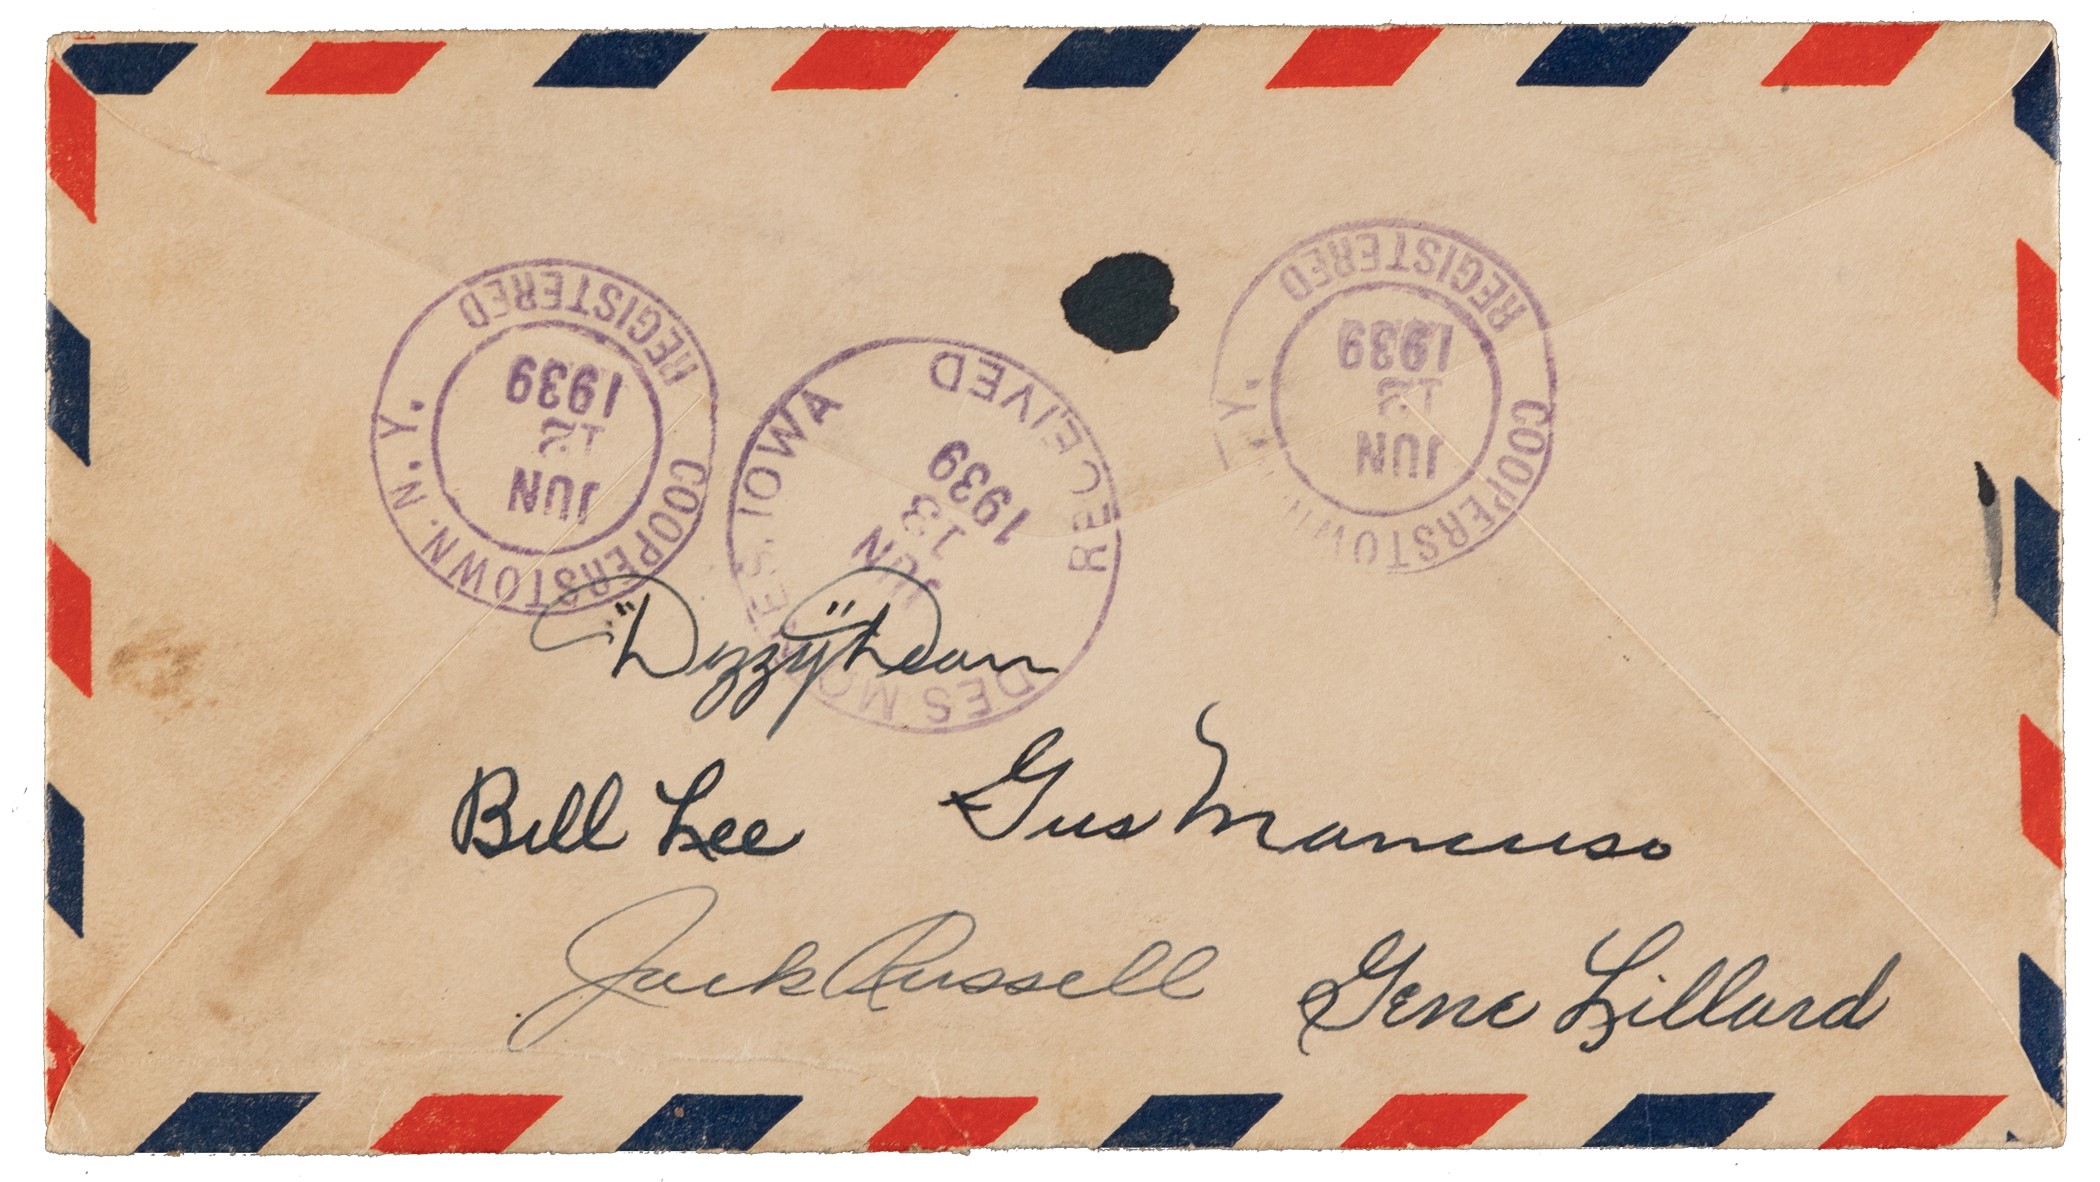 REGISTERED
COOPERSTOWN. N.Y.
JUN
12
1939
RECEIVED
DES MOINES, IOWA
JUN
13
1939
REGISTERED
COOPERSTOWN N.Y.
JUN
12
1939
"Dizzy" Dean
Bill Lee Gus Mancuso
Jack Russell Gene Lillard